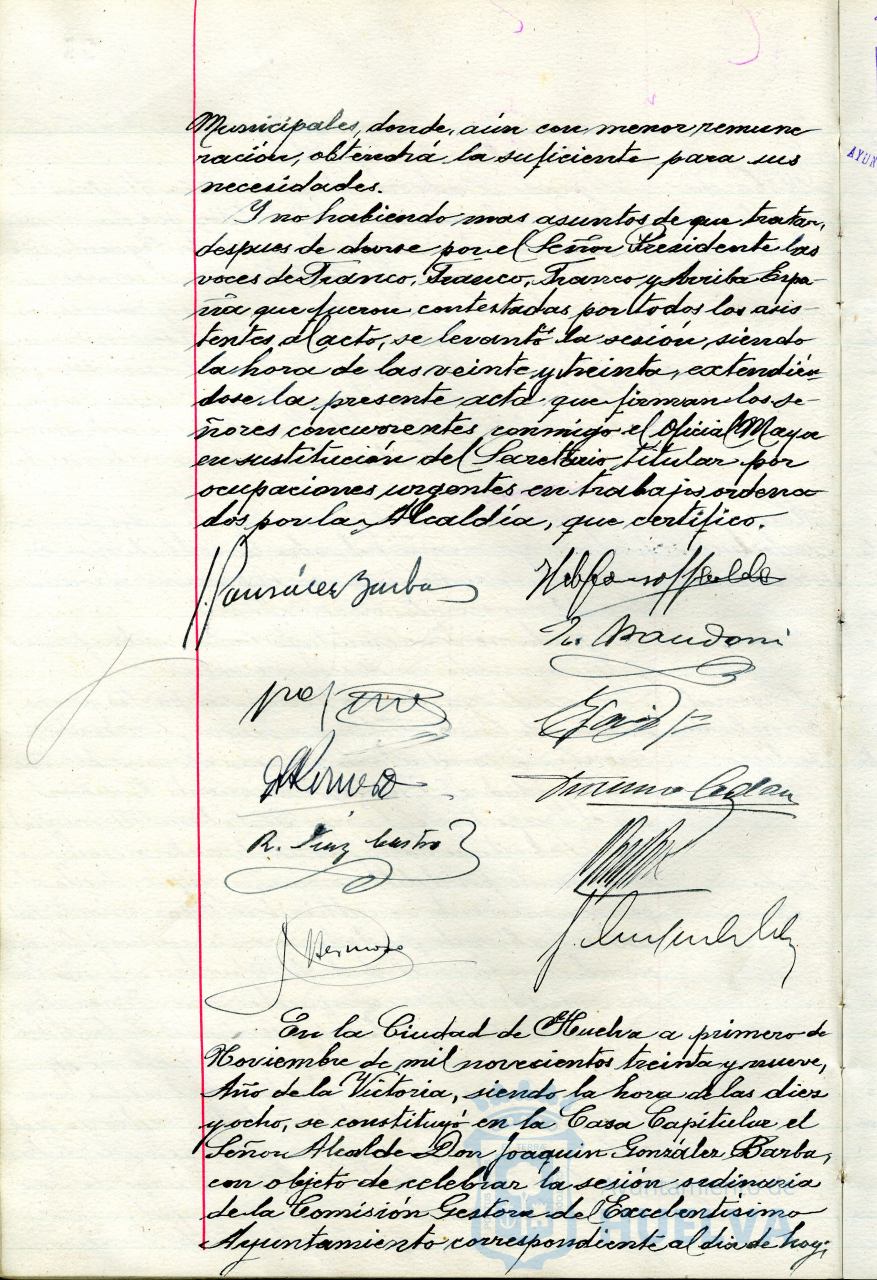 Municipales, donde, aún con menor remune
ración, obtendrá la suficiente para sus
necesidades.
Y no habiendo mas asuntos de que tratar,
despues de darse por el Señor Presidente las
voces de Franco, Franco, Franco y Arriba Espa-
ña que fueron contestadas por todos los asis-
tentes al acto, se levantó la sesión, siendo
la hora de las veinte y treinta, extendién-
dose la presente acta que firman los se-
ñores concurrentes conmigo el Oficial Mayor
en sustitución del Secretario titular por
ocupaciones urgentes en trabajos ordena
dos por la Alcaldía, que certifico.
J. González Barba
R. Díaz Castro
J. Hermoso
En la Ciudad de Huelva a primero de
Noviembre de mil novecientos treinta y nueve,
Año de la Victoria, siendo la hora de las diez
y ocho, se constituyó en la Casa Capitular el
Señor Alcalde Don Joaquin González Barba,
con objeto de celebrar la sesión ordinaria
de la Comisión Gestora del Excelentisimo
Ayuntamiento correspondiente al dia de hoy;
Ayuntamiento de
HUELVA
AYUN